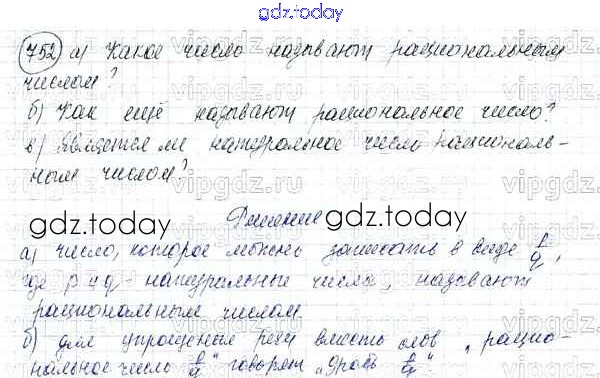 gdz.today
752 а) Какое число называют рациональным
числом?
б) Как ещё называют рациональное число?
в) Является ли натуральное число рациональ-
ным числом?
gdz.today
gdz.today
Решение
а) число, которое можно записать в виде p/q,
где p и q - натуральные числа, называют
рациональным числом
б) для упрощения речи вместо слов „рацио-
нальное число p/q" говорят „дробь p/q"
vipgdz.ru